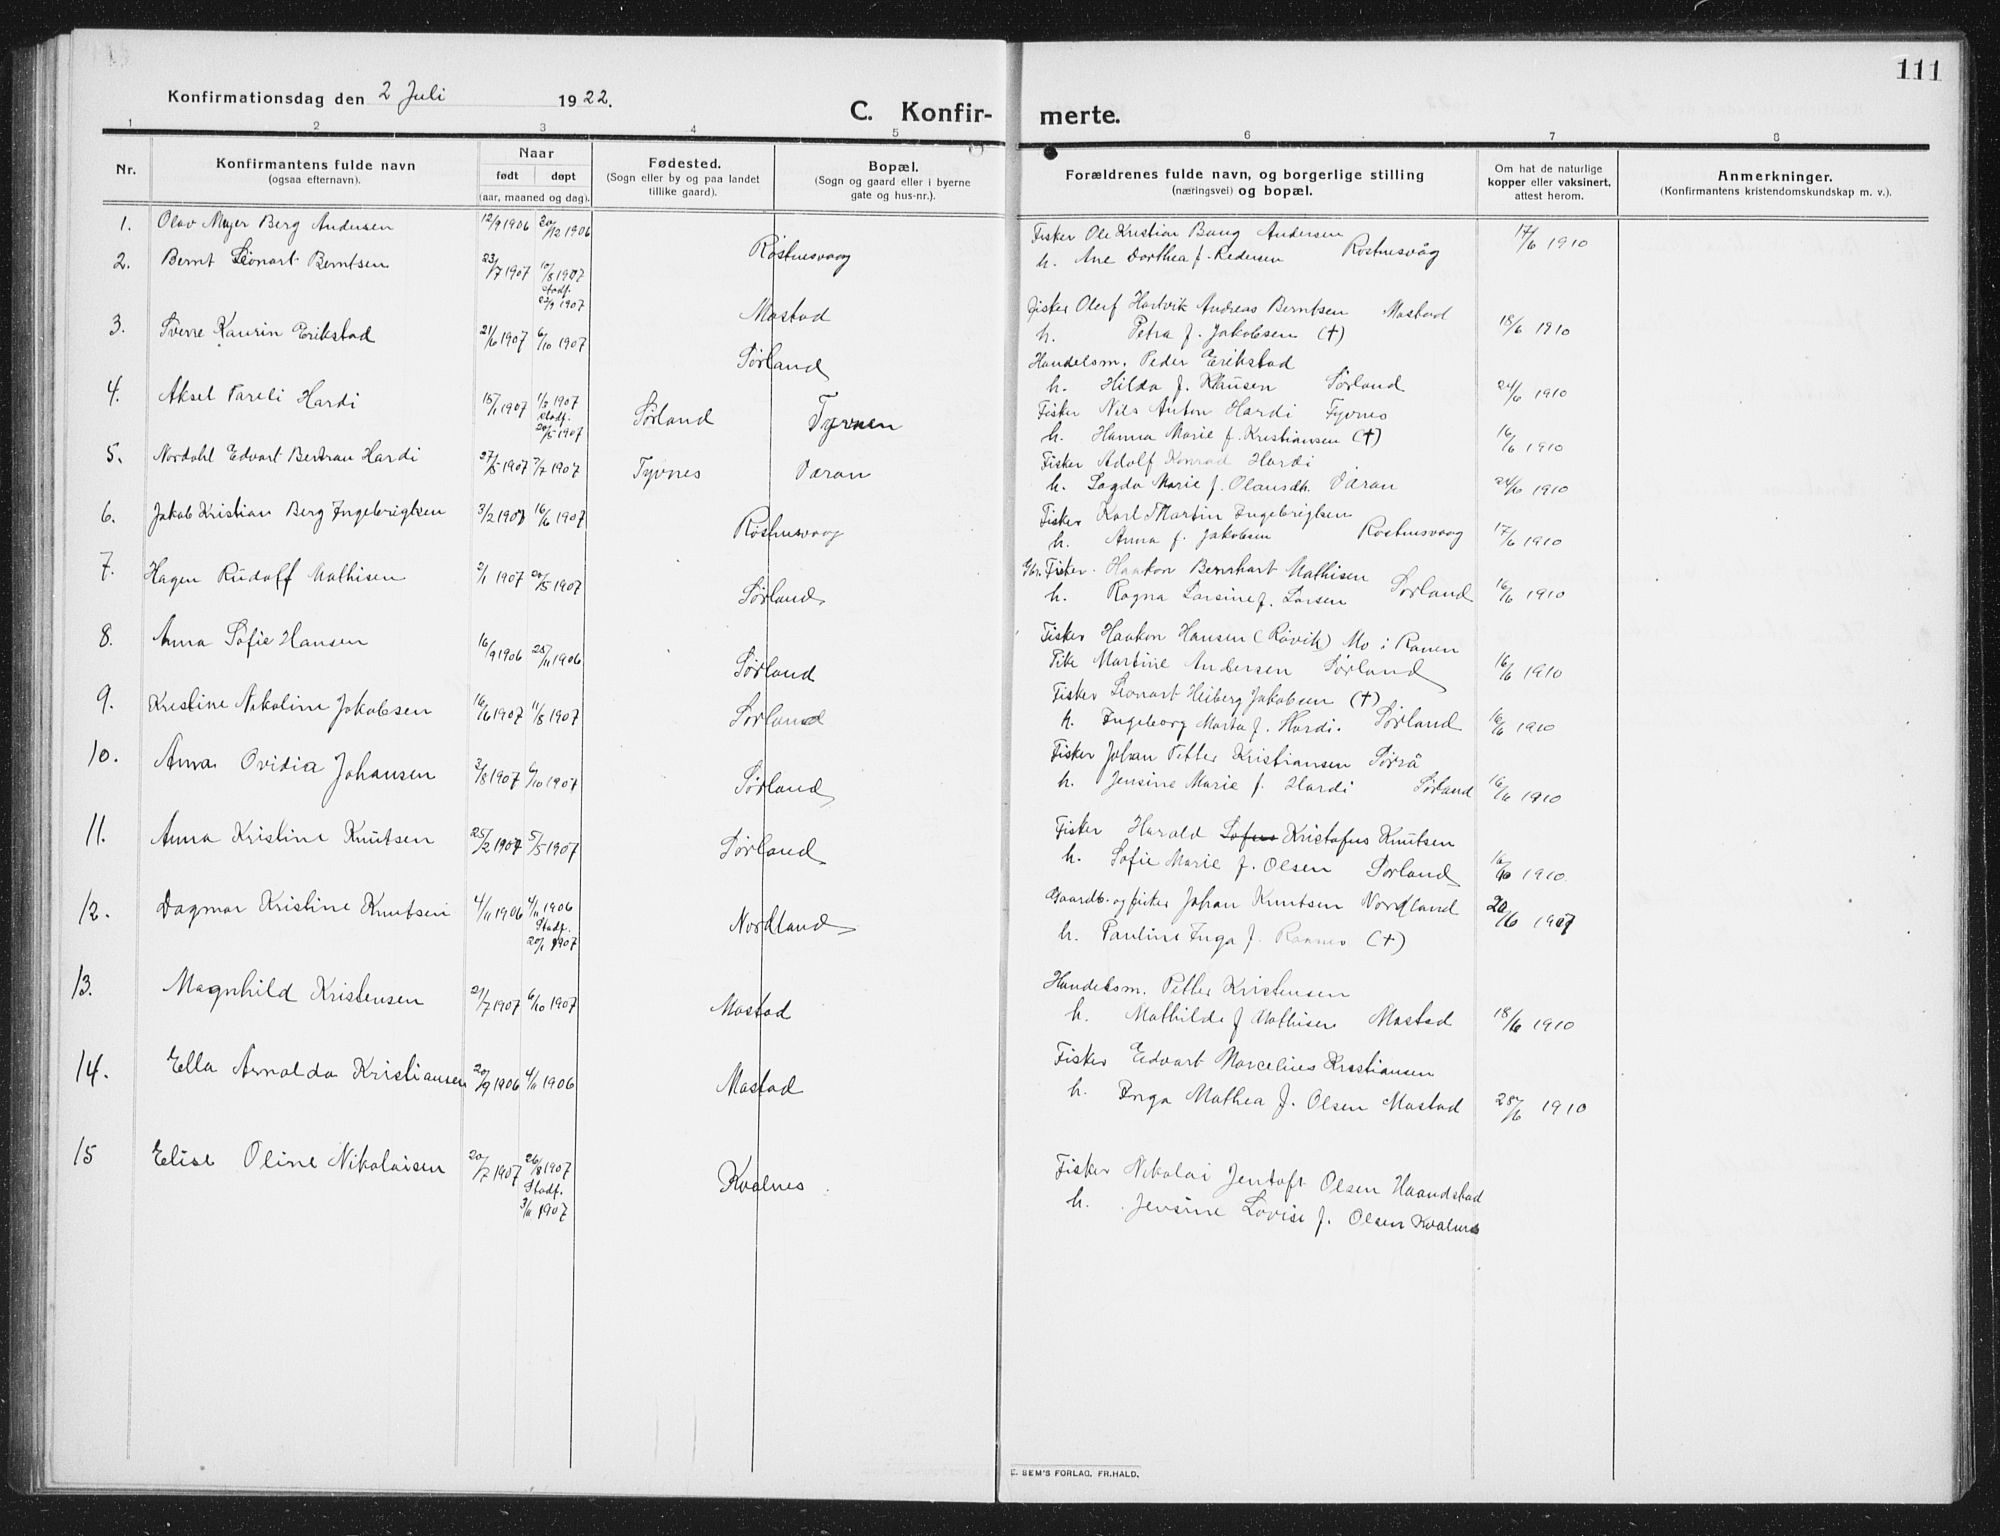 111
Konfirmationsdag den 2 Juli 1922.
C. Konfirmerte.
1 2 3 4 5 6 7 8
Nr.
Konfirmantens fulde navn
(ogsaa efternavn).
Naar
født døpt
(aar, maaned og dag).
Fødested.
(Sogn eller by og paa landet
tillike gaard).
Bopæl.
(Sogn og gaard eller i byerne
gate og hus-nr.).
Forældrenes fulde navn, og borgerlige stilling
(næringsvei) og bopæl.
Om hat de naturlige
kopper eller vaksinert,
attest herom.
Anmerkninger.
(Konfirmantens kristendomskundskap m. v.).
1. Olav Meyer Berg Andersen 12/9 1906 30/12 1906 Røstnesvaag
Fisker Ole Kristian Bang Andersen
h. Ane Dorthea f. Pedersen Røstnesvåg 17/6 1910
2. Bernt Leonart Berntsen 23/7 1907 10/8 1907
Stadf.
22/9 1907
Mastad
Fisker Oluf Hartvik Andreas Berntsen Mastad
h. Petra f. Jakobsen (†) 18/6 1910
3. Sverre Kaurin Erikstad 21/6 1907 6/10 1907 Sørland
Handelsm. Peder Erikstad
h. Hilda f. Klausen Sørland 24/6 1910
4. Aksel Pareli Hardi 15/1 1907 1/2 1907
Stadf.
20/5 1907
Sørland Tyvnen
Fisker Nils Anton Hardi Tyvnes
h. Hanna Marie f. Kristiansen (†) 16/6 1910
5. Nordahl Edvart Bertran Hardi 27/5 1907 7/7 1907 Tyvnes Varan
Fisker Adolf Konrad Hardi
h. Lagda Marie f. Olausdt. Varan 24/6 1910
6. Jakob Kristian Berg Ingebrigtsen 3/2 1907 16/6 1907 Røstnesvaag
Fisker Karl Martin Ingebrigtsen
h. Anna f. Jakobsen Røstnesvaag 17/6 1910
7. Hagen Rudolf Mathisen 2/1 1907 20/5 1907 Sørland
Gbr. Fisker. Haakon Bernhart Mathisen
h. Ragna Larsine f. Larsen Sørland 16/6 1910
8. Anna Sofie Hansen 16/9 1906 25/11 1906 Sørland
Fisker Haakon Hansen (Røvik) Mo i Ranen
Pike Martine Andersen Sørland 16/6 1910
9. Kristine Nikoline Jakobsen 16/6 1907 11/8 1907 Sørland
Fisker Leonart Heiberg Jakobsen (†)
h. Ingeborg Marta f. Hardi. Sørland 16/6 1910
10. Anna Ovidia Johansen 3/8 1907 6/10 1907 Sørland
Fisker Johan Petter Kristiansen Sørrå
h. Jensine Marie f. Hardi Sørland 16/6 1910
11. Anna Kristine Knutsen 25/2 1907 5/5 1907 Sørland
Fisker Harald Sofus Kristofus Knutsen
h. Sofie Marie f. Olsen Sørland 16/6 1910.
12. Dagmar Kristine Knutsen 4/11 1906 4/11 1906
Stadf.
20/1 1907
Nordland
Gaardb. og fisker Johan Knutsen Nordland
h. Pauline Inga f. Rannes (†) 20/6 1907
13. Magnhild Kristensen 21/7 1907 6/10 1907 Mastad
Handelsm. Petter Kristensen
h. Mathilde f Mathisen Mastad 18/6 1910
14. Ella Arnolda Kristiansen 20/9 1906 4/11 1906 Mastad
Fisker Edvart Marcelius Kristiansen
h. Inga Mathea f. Olsen Mastad 25/6 1910
15 Elise Oline Nikolaisen 20/7 1907 26/8 1907
Stadf.
3/11 1907
Kvalnes
Fisker Nikolai Jentoft Olsen Haandstad
h. Jensine Lovise f. Olsen Kvalnes
E. SEM'S FORLAG, FR.HALD.